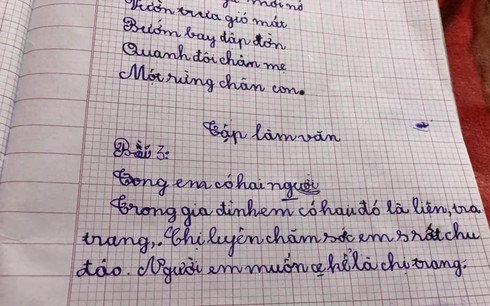 mới nở
Vườn trưa gió mát
Bướm bay dập dờn
Quanh đôi chân mẹ
Một rừng chân con.
Tập làm văn
Bài 3:
Trong em có hai người
Trong gia đình em có hau đó là liên, tra
trang,. Chị luyên chăm sóc em s rất chu
đáo. Người em muốn kể là chị trang.